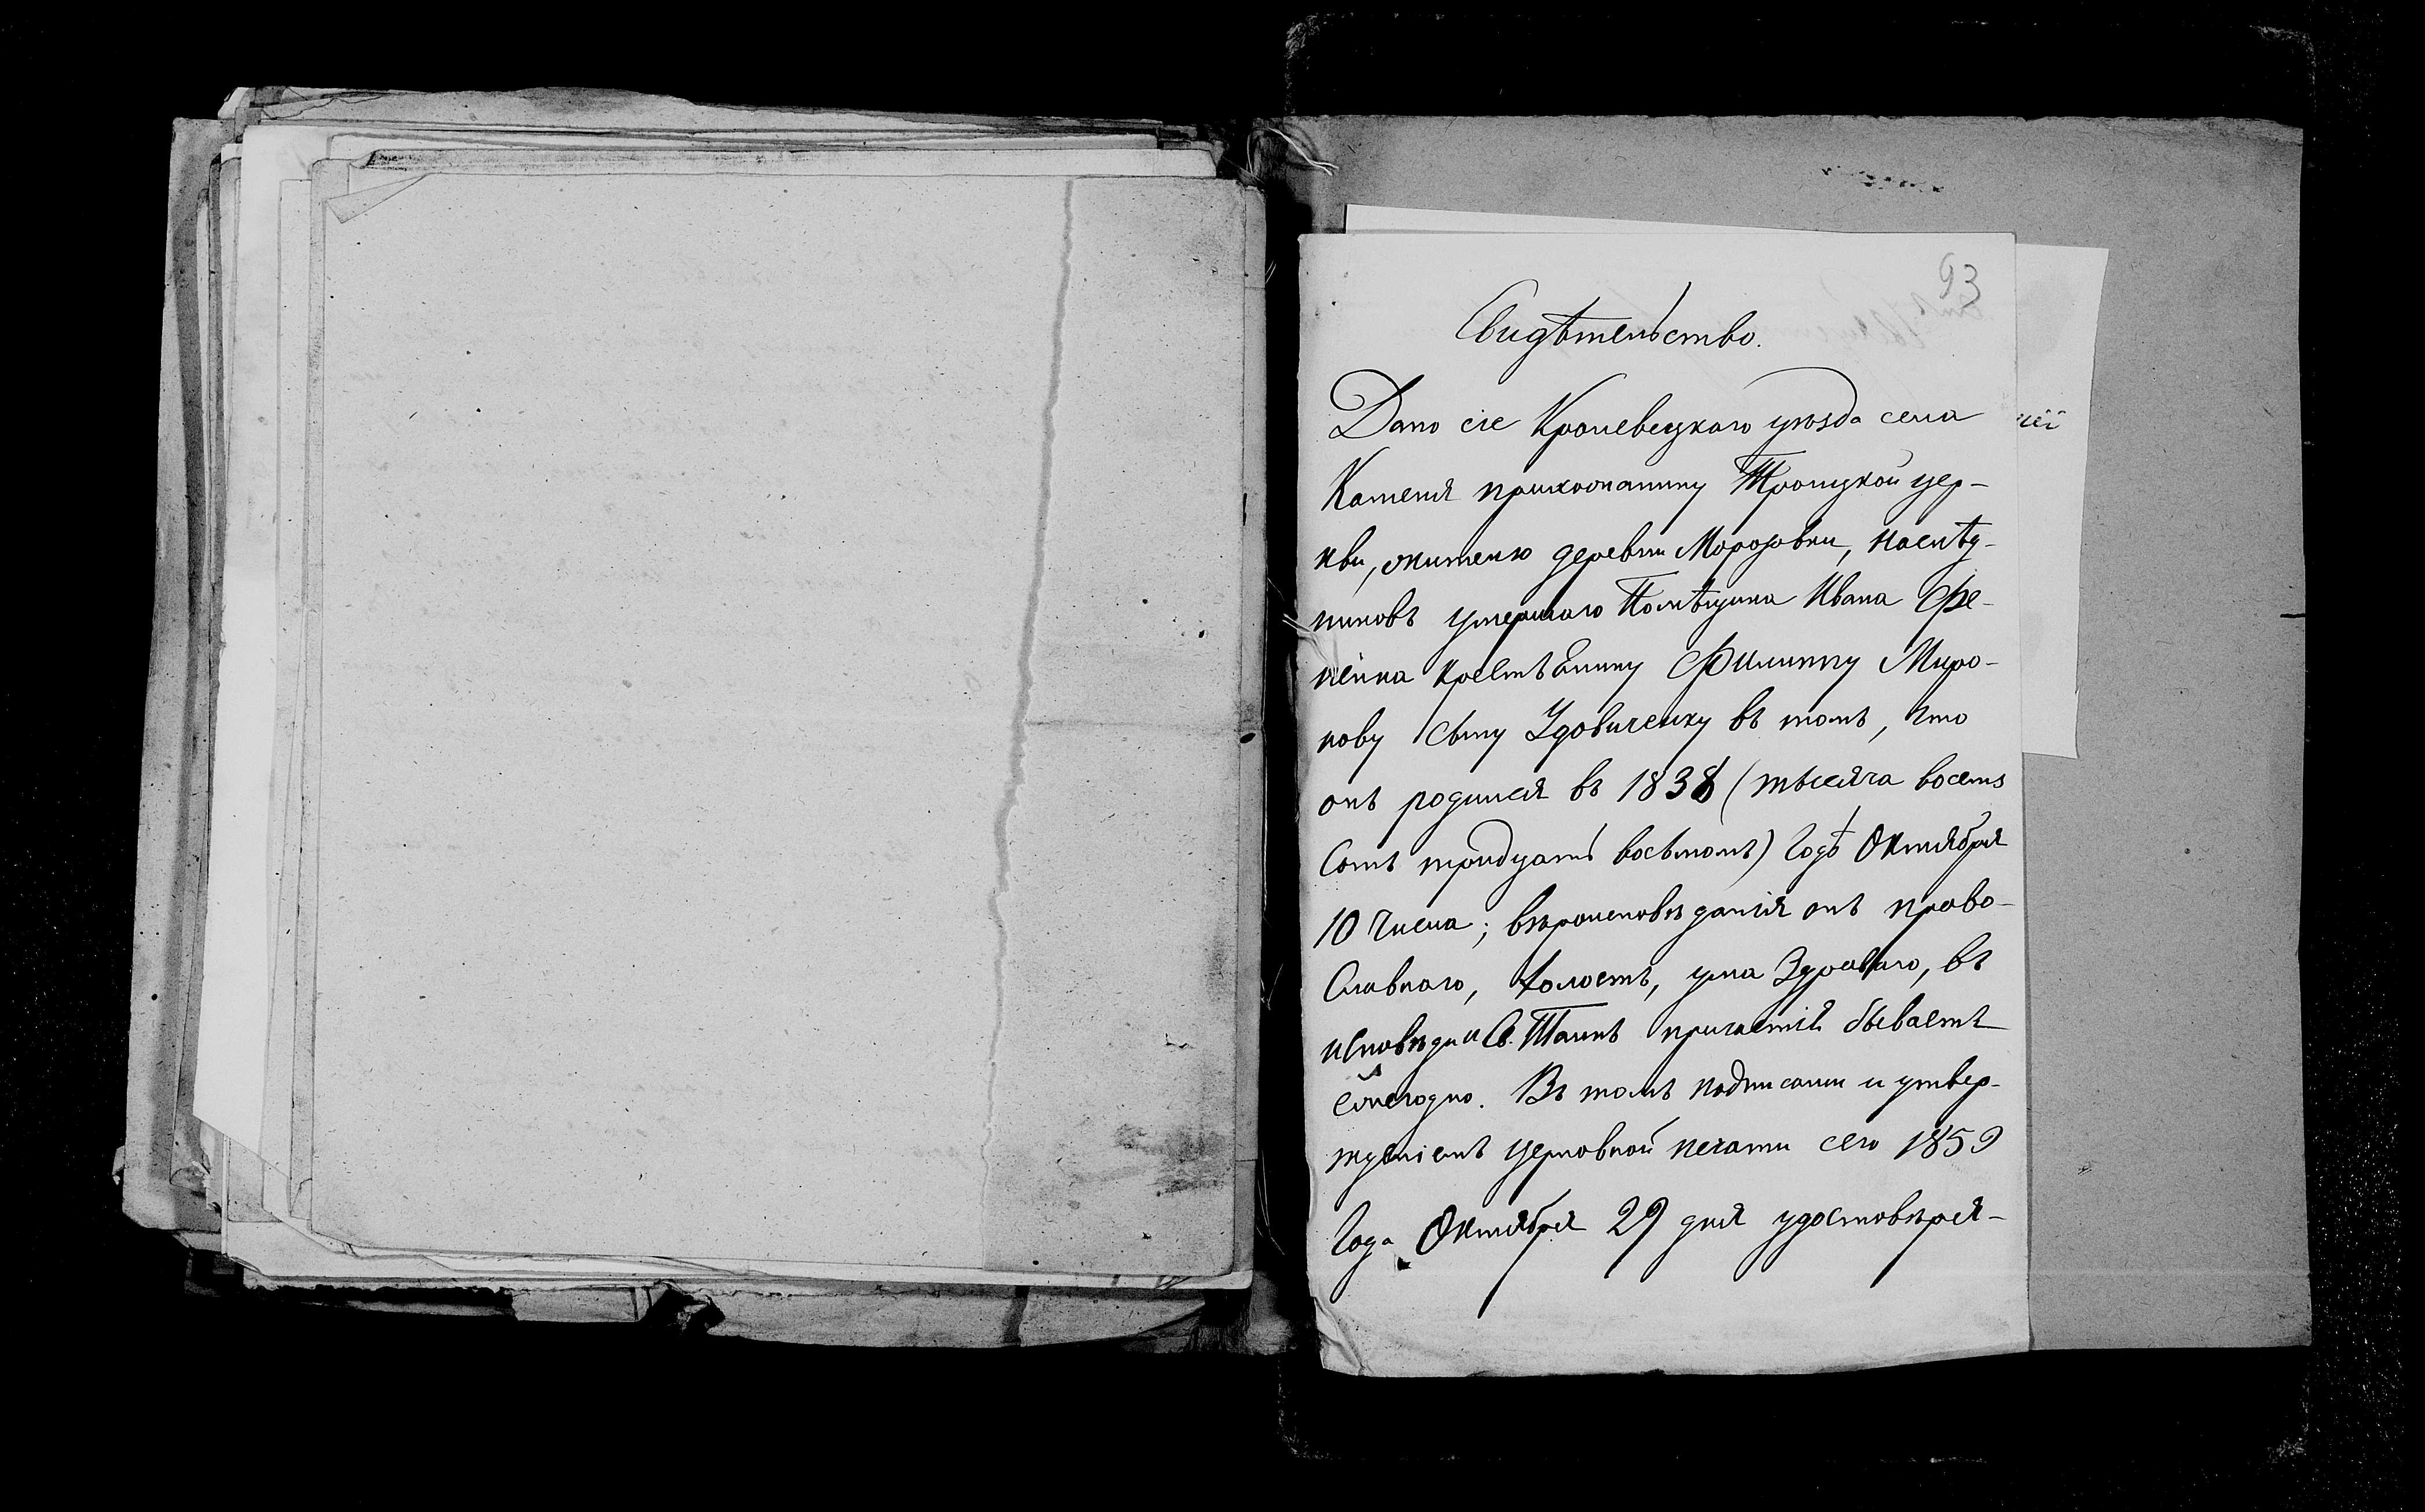 93
Свидѣтельство.
Дано сіе Кролевецкаго уѣзда села
Каменя прихожанину Троицкой цер-
кви, жителю деревни Морозовки, наслѣд-
никовъ умершаго Помѣщика Ивана Фе-
сенка крестьянину Филиппу Миро-
нову сыну Удовиченку въ томъ, что
онъ родился въ 1838 (тысяча восемъ
сотъ тридцать восьмомъ) годѣ Октября
10 числа; вѣроисповѣданія онъ право-
славнаго, холостъ, ума здороваго, въ
исповѣди и Св. Таинъ причастія бываетъ
ежегодно. Въ томъ подписами и утвер-
жденіемъ церковной печати сего 1859
года Октября 29 дня удостовѣря-